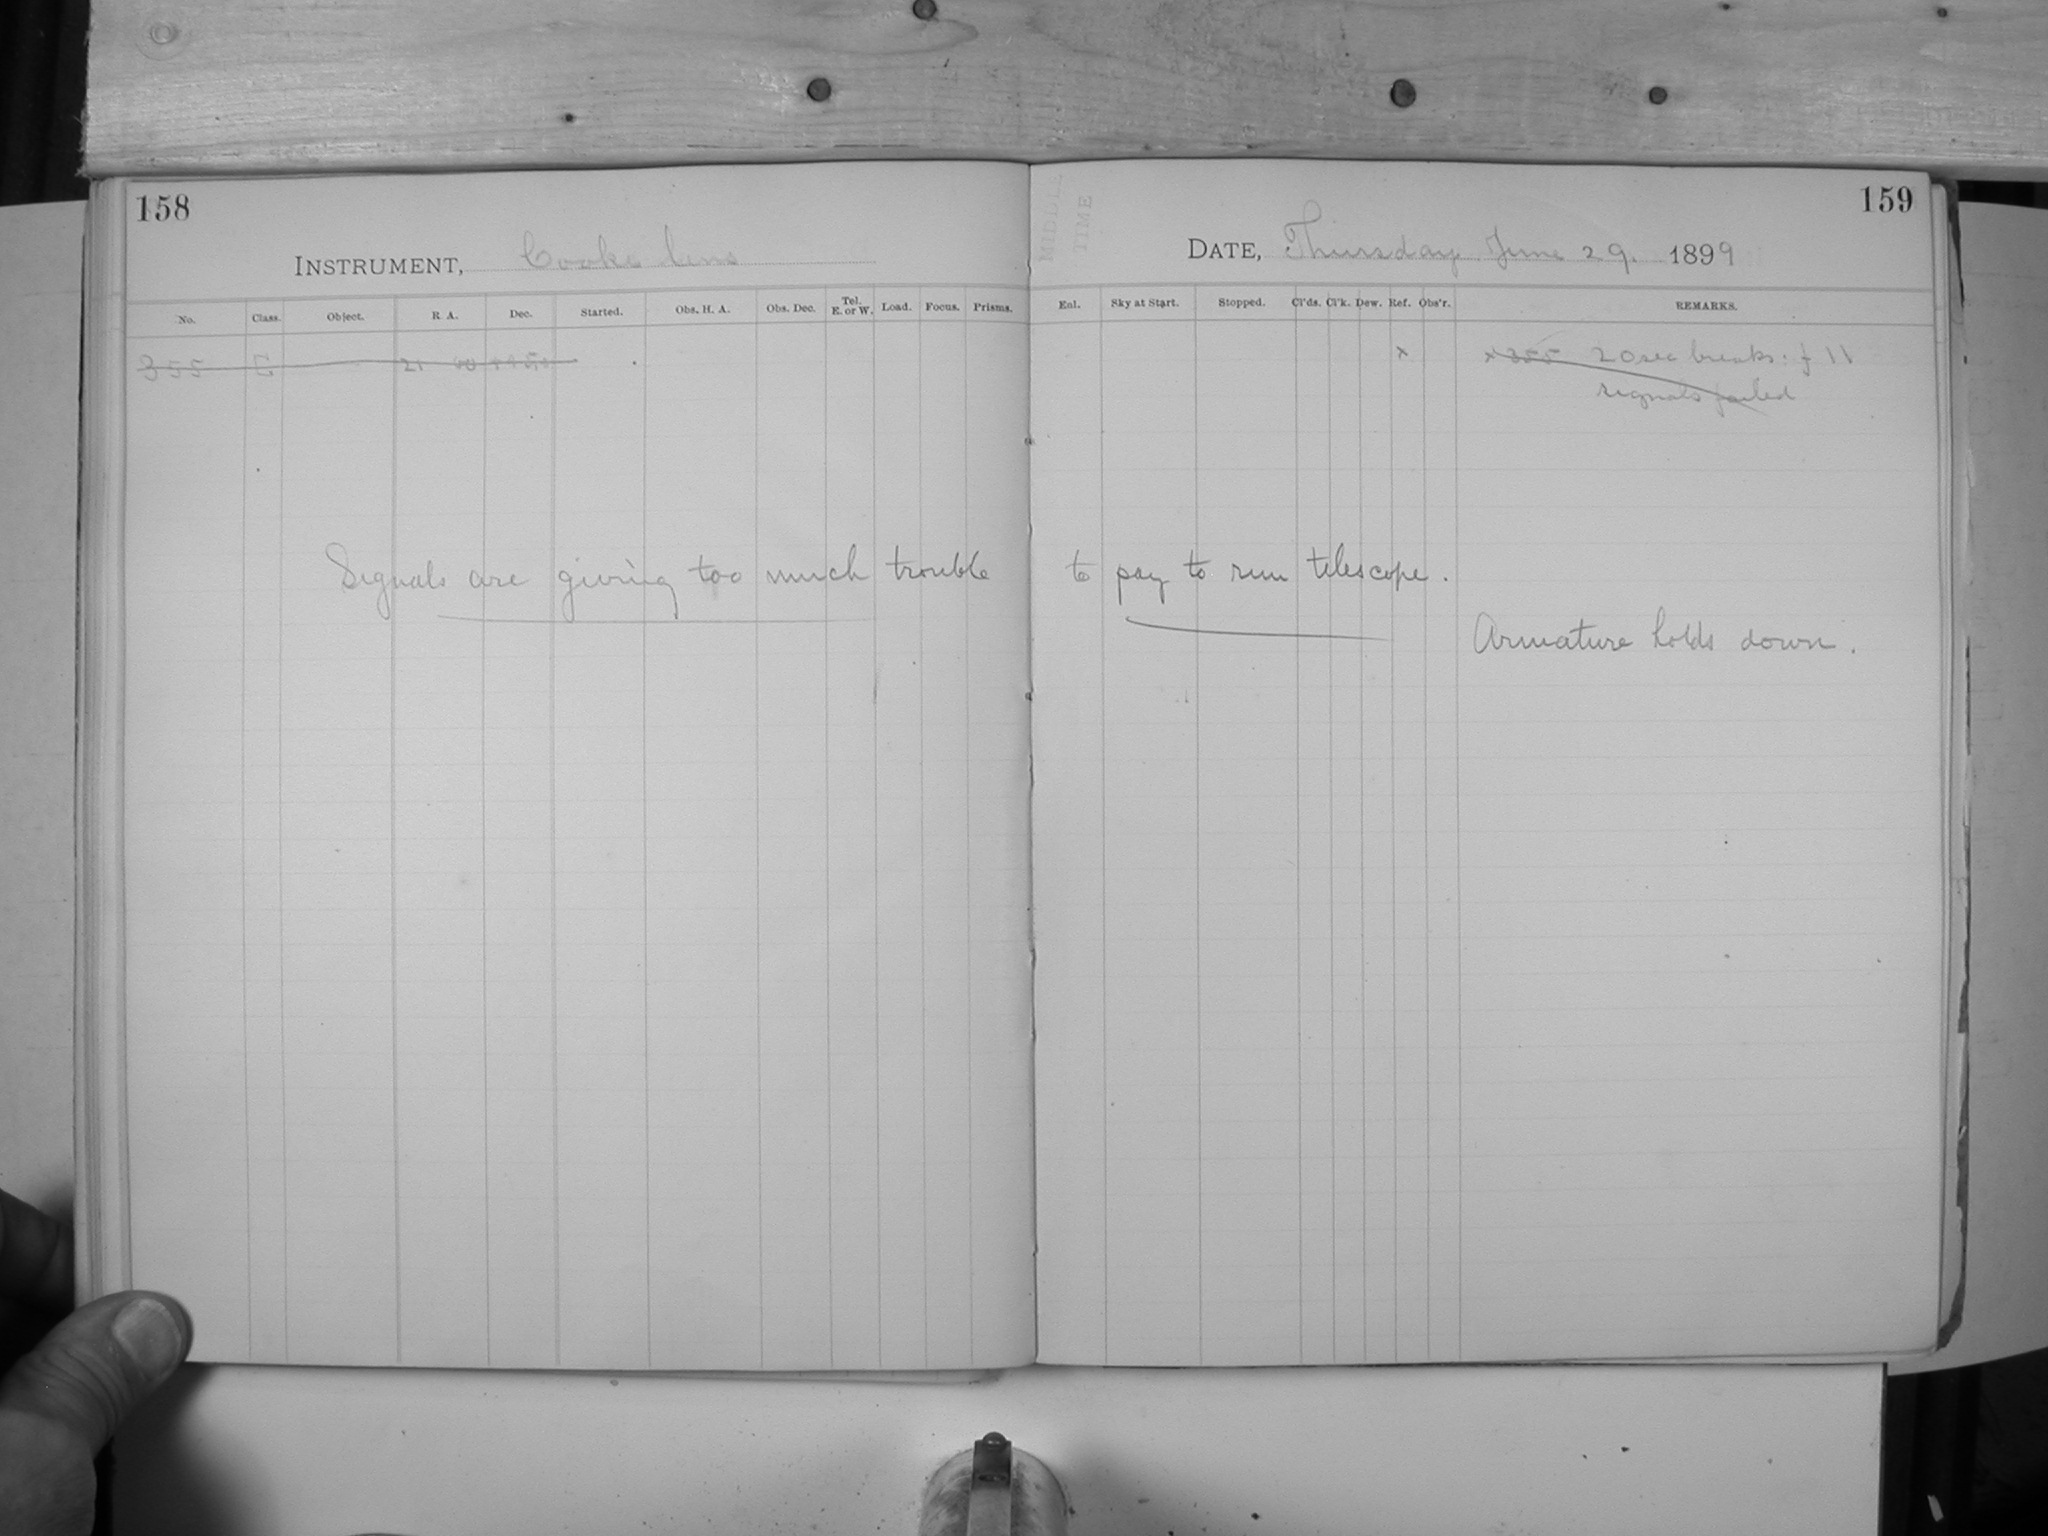 158
INSTRUMENT, Cooke lens
No. Class. Object. R. A. Dec. Started. Obs. H. A. Obs. Dec. Tel. E. or W. Load. Focus. Prisms.
355 C 21 00
Signals are giving too much trouble to pay to run telescope.
159
MIDDLE
TIME
DATE, Thursday June 29. 1899
Enl. Sky at Start. Stopped. Cl'ds. Cl'k. Dew. Ref. Obs'r. REMARKS.
x x 355 20sec breaks: f 11
signals failed
Armature holds down.